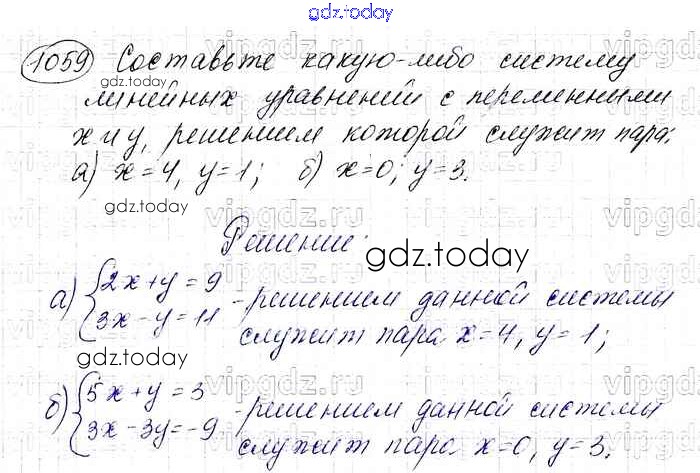 gdz.today
1059 Составьте какую-либо систему
gdz.today
линейных уравнений с переменными
x и y, решением которой служит пара:
а) x=4, y=1; б) x=0; y=3.
gdz.today
vipgdz.ru
Решение:
gdz.today
а) {2x+y=9
3x-y=11 - решением данной системы
служит пара x=4, y=1;
gdz.today
б) {5x+y=3
3x-3y=-9 - решением данной системы
служит пара x=0, y=3.